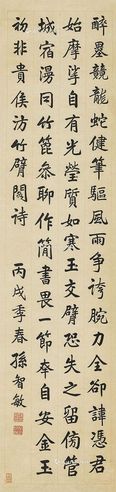 醉墨競龍蛇健筆驅風雨爭誇腕力全卻諱憑君
始摩挲自有光瑩質如寒玉交臂恐失之留傍管
城宿湯同竹箆參聊作簡書畏一節奉自安金玉
初非貴侯訪竹臂閣詩
丙戌季春孫智敏